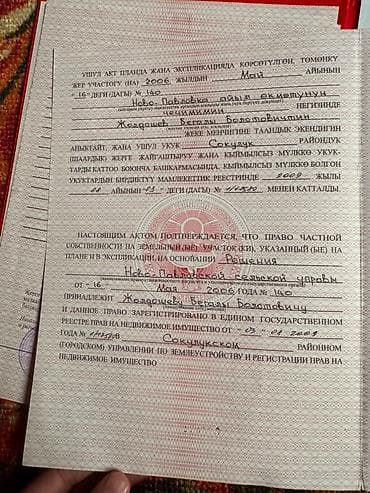 УШУЛ АКТ ПЛАНДА ЖАНА ЭКСПЛИКАЦИЯДА КӨРСӨТҮЛГӨН, ТӨМӨНКҮ
ЖЕР УЧАСТОГУ (НА) 2006 ЖЫЛДЫН Май АЙЫНЫН
-16- ДЕГИ (ДАГЫ) № 140
Ново-Павловка айыл өкмөтүнүн
чечиминин НЕГИЗИНДЕ
Жолдошев Бегалы Болотовичтин
ЖЕКЕ МЕНЧИГИНЕ ТААНДЫК ЭКЕНДИГИН
АНЫКТАЙТ, ЖАНА УШУЛ УКУК Сокулук РАЙОНДУК
(ШААРДЫК) ЖЕРГЕ ЖАЙГАШТЫРУУ ЖАНА КЫЙМЫЛСЫЗ МҮЛККӨ УКУК-
ТАРДЫ КАТТОО БОЮНЧА БАШКАРМАСЫНДА, КЫЙМЫЛСЫЗ МҮЛККӨ БОЛГОН
УКУКТАРДЫН БИРДИКТҮҮ МАМЛЕКЕТТИК РЕЕСТРИНДЕ 2009 ЖЫЛЫ
АЙЫНЫН -03- ДЕГИ (ДАГЫ) № МЕНЕН КАТТАЛДЫ
НАСТОЯЩИМ АКТОМ ПОДТВЕРЖДАЕТСЯ, ЧТО ПРАВО ЧАСТНОЙ
СОБСТВЕННОСТИ НА ЗЕМЕЛЬНЫЙ (ЫЕ) УЧАСТОК (КИ), УКАЗАННЫЙ (ЫЕ) НА
ПЛАНЕ И ЭКСПЛИКАЦИИ, НА ОСНОВАНИИ Решения
Ново-Павловской сельской управы
ОТ -16- Мая 2006 ГОДА № 140
ПРИНАДЛЕЖИТ Жолдошеву Бегалы Болотовичу
И ДАННОЕ ПРАВО ЗАРЕГИСТРИРОВАНО В ЕДИНОМ ГОСУДАРСТВЕННОМ
РЕЕСТРЕ ПРАВ НА НЕДВИЖИМОЕ ИМУЩЕСТВО ОТ -03- 2009
ГОДА № Сокулукском РАЙОННОМ
(ГОРОДСКОМ) УПРАВЛЕНИИ ПО ЗЕМЛЕУСТРОЙСТВУ И РЕГИСТРАЦИИ ПРАВ НА
НЕДВИЖИМОЕ ИМУЩЕСТВО